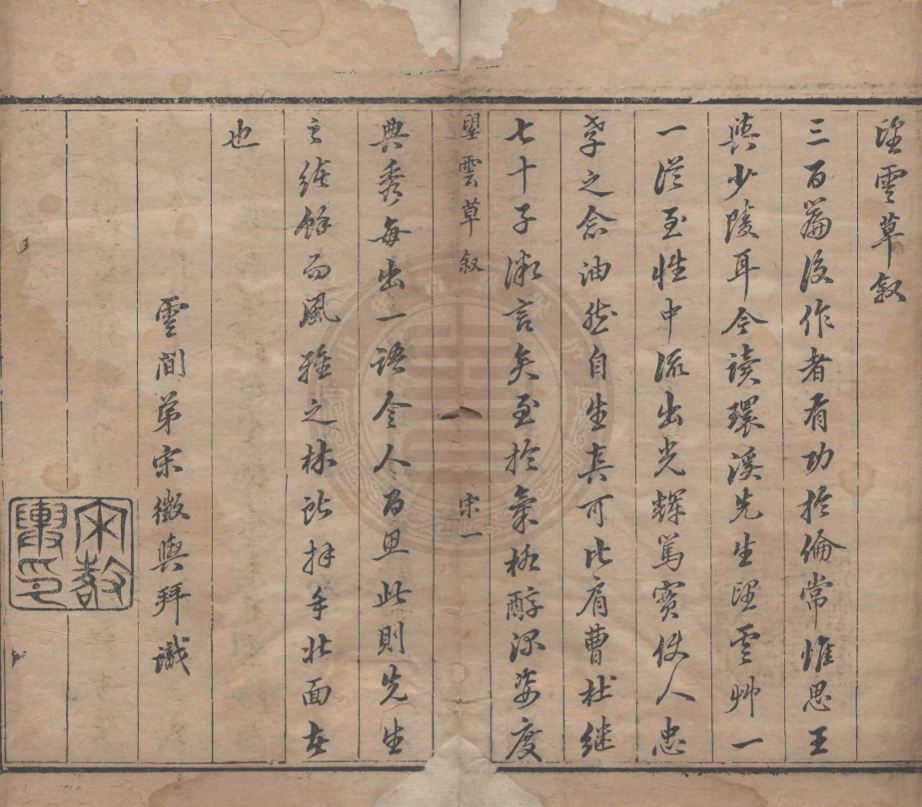 望雲草叙
三百篇後作者有功於倫常惟思王
與少陵耳今讀環溪先生望雲艸一
一從至性中流出光輝篤實使人忠
孝之念油然自生真可比肩曹杜継
七十子微言矣至於氣格醇深姿度
望雲草叙
宋一
典秀每出一語令人百思此則先生
之緒餘而風雅之林所拜手北面者
也
雲間弟宋徵輿拜識
宋徵輿印